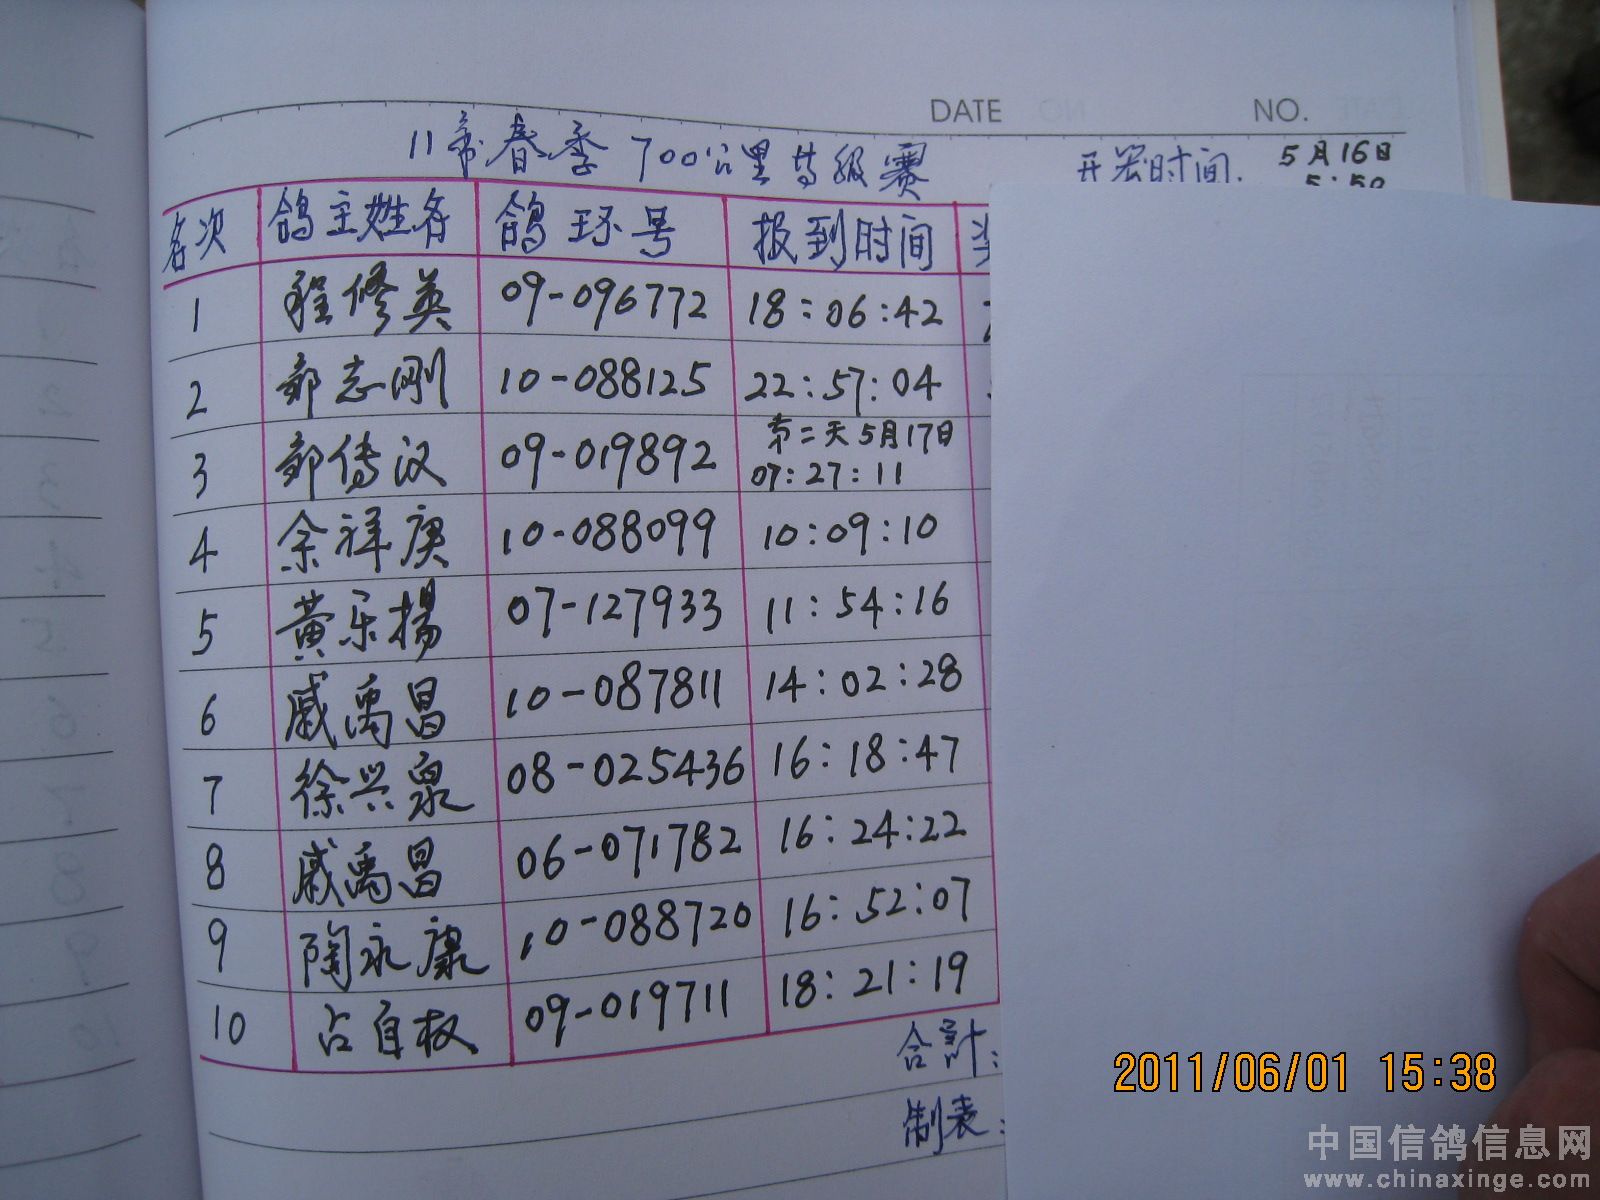 DATE NO.
11年春季700公里等级赛 开笼时间: 5月16日
5:50
名次 鸽主姓名 鸽环号 报到时间
1 程修英 09-096772 18:06:42
2 郭志刚 10-088125 22:57:04
3 郭传汉 09-019892 第二天5月17日
07:27:11
4 余祥庚 10-088099 10:09:10
5 黄乐揚 07-127933 11:54:16
6 戚禹昌 10-087811 14:02:28
7 徐兴泉 08-025436 16:18:47
8 戚禹昌 06-071782 16:24:22
9 陶永康 10-088720 16:52:07
10 占自权 09-019711 18:21:19
合計:
制表:
2011/06/01 15:38
中国信鸽信息网
www.chinaxinge.com